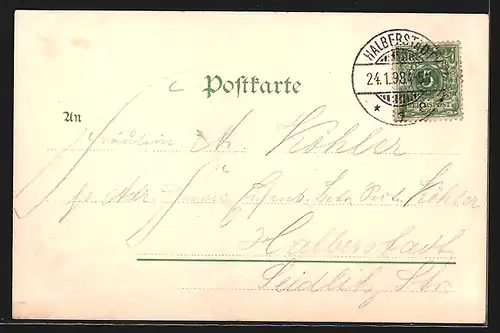 HALBERSTADT
24.1.98
5
REICHSPOST
Postkarte
An
Fräulein A. Köhler
Adr. Köhler
Halberstadt
Seidlitz Str.